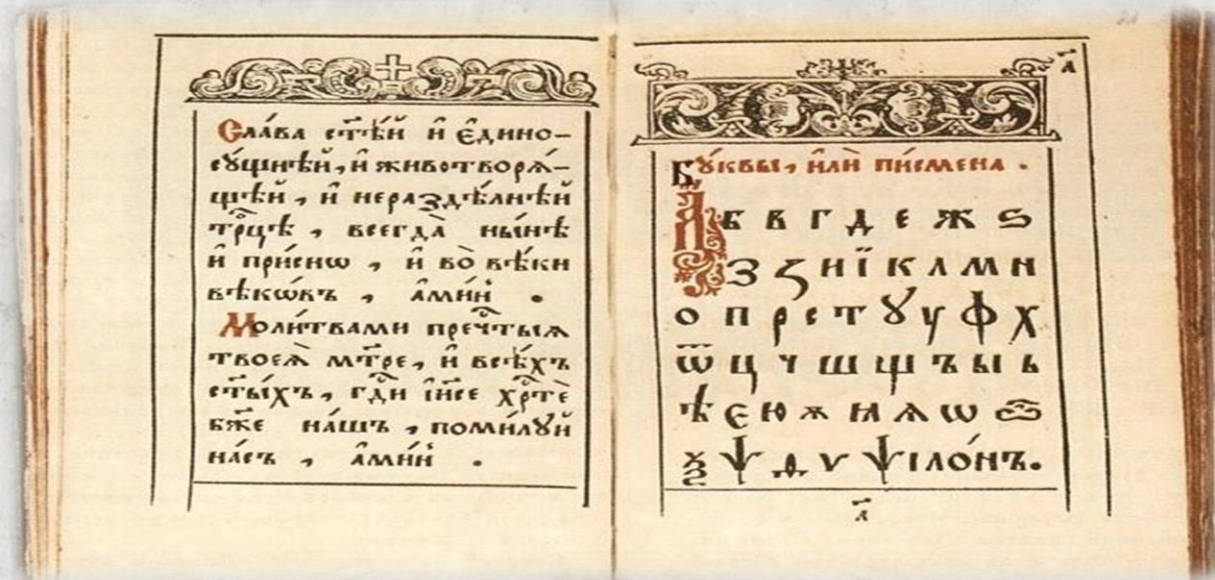 Сла́ва ст҃ѣ́й и҆ є҆дино-
сꙋ́щнѣй, и҆ животворѧ́-
щѣй, и҆ нераздѣ́лнѣй
трⷪ҇цѣ, всегда̀ ны́нѣ
и҆ при́снѡ, и҆ во̀ вѣ́ки
вѣкѡ́въ, а҆ми́нь.
Моли́твами пречⷭ҇тыѧ
твоеѧ̀ мт҃ре, и҆ всѣ́хъ
ст҃ы́хъ, гдⷭ҇и і҆и҃се хрⷭ҇тѐ
бж҃е на́шъ, поми́лꙋй
на́съ, а҆ми́нь.
а҃
Бꙋ́квы, и҆лѝ пи́смена.
А б в г д е ж ѕ
з ꙁ и ї к л м н
о п р с т ꙋ у ф х
ѿ ц ч ш щ ъ ы ь
ѣ є ю ѫ ꙗ ѧ ѡ ѽ
ѯ ѱ ѳ ѵ ѱїло́нъ.
а҃